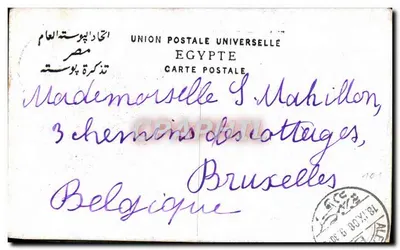 اتحاد البوسته العام
مصر
تذكرة بوسته
UNION POSTALE UNIVERSELLE
EGYPTE
CARTE POSTALE
Mademoiselle S Mahillon,
3 chemins des cottages,
Bruxelles
Belgique